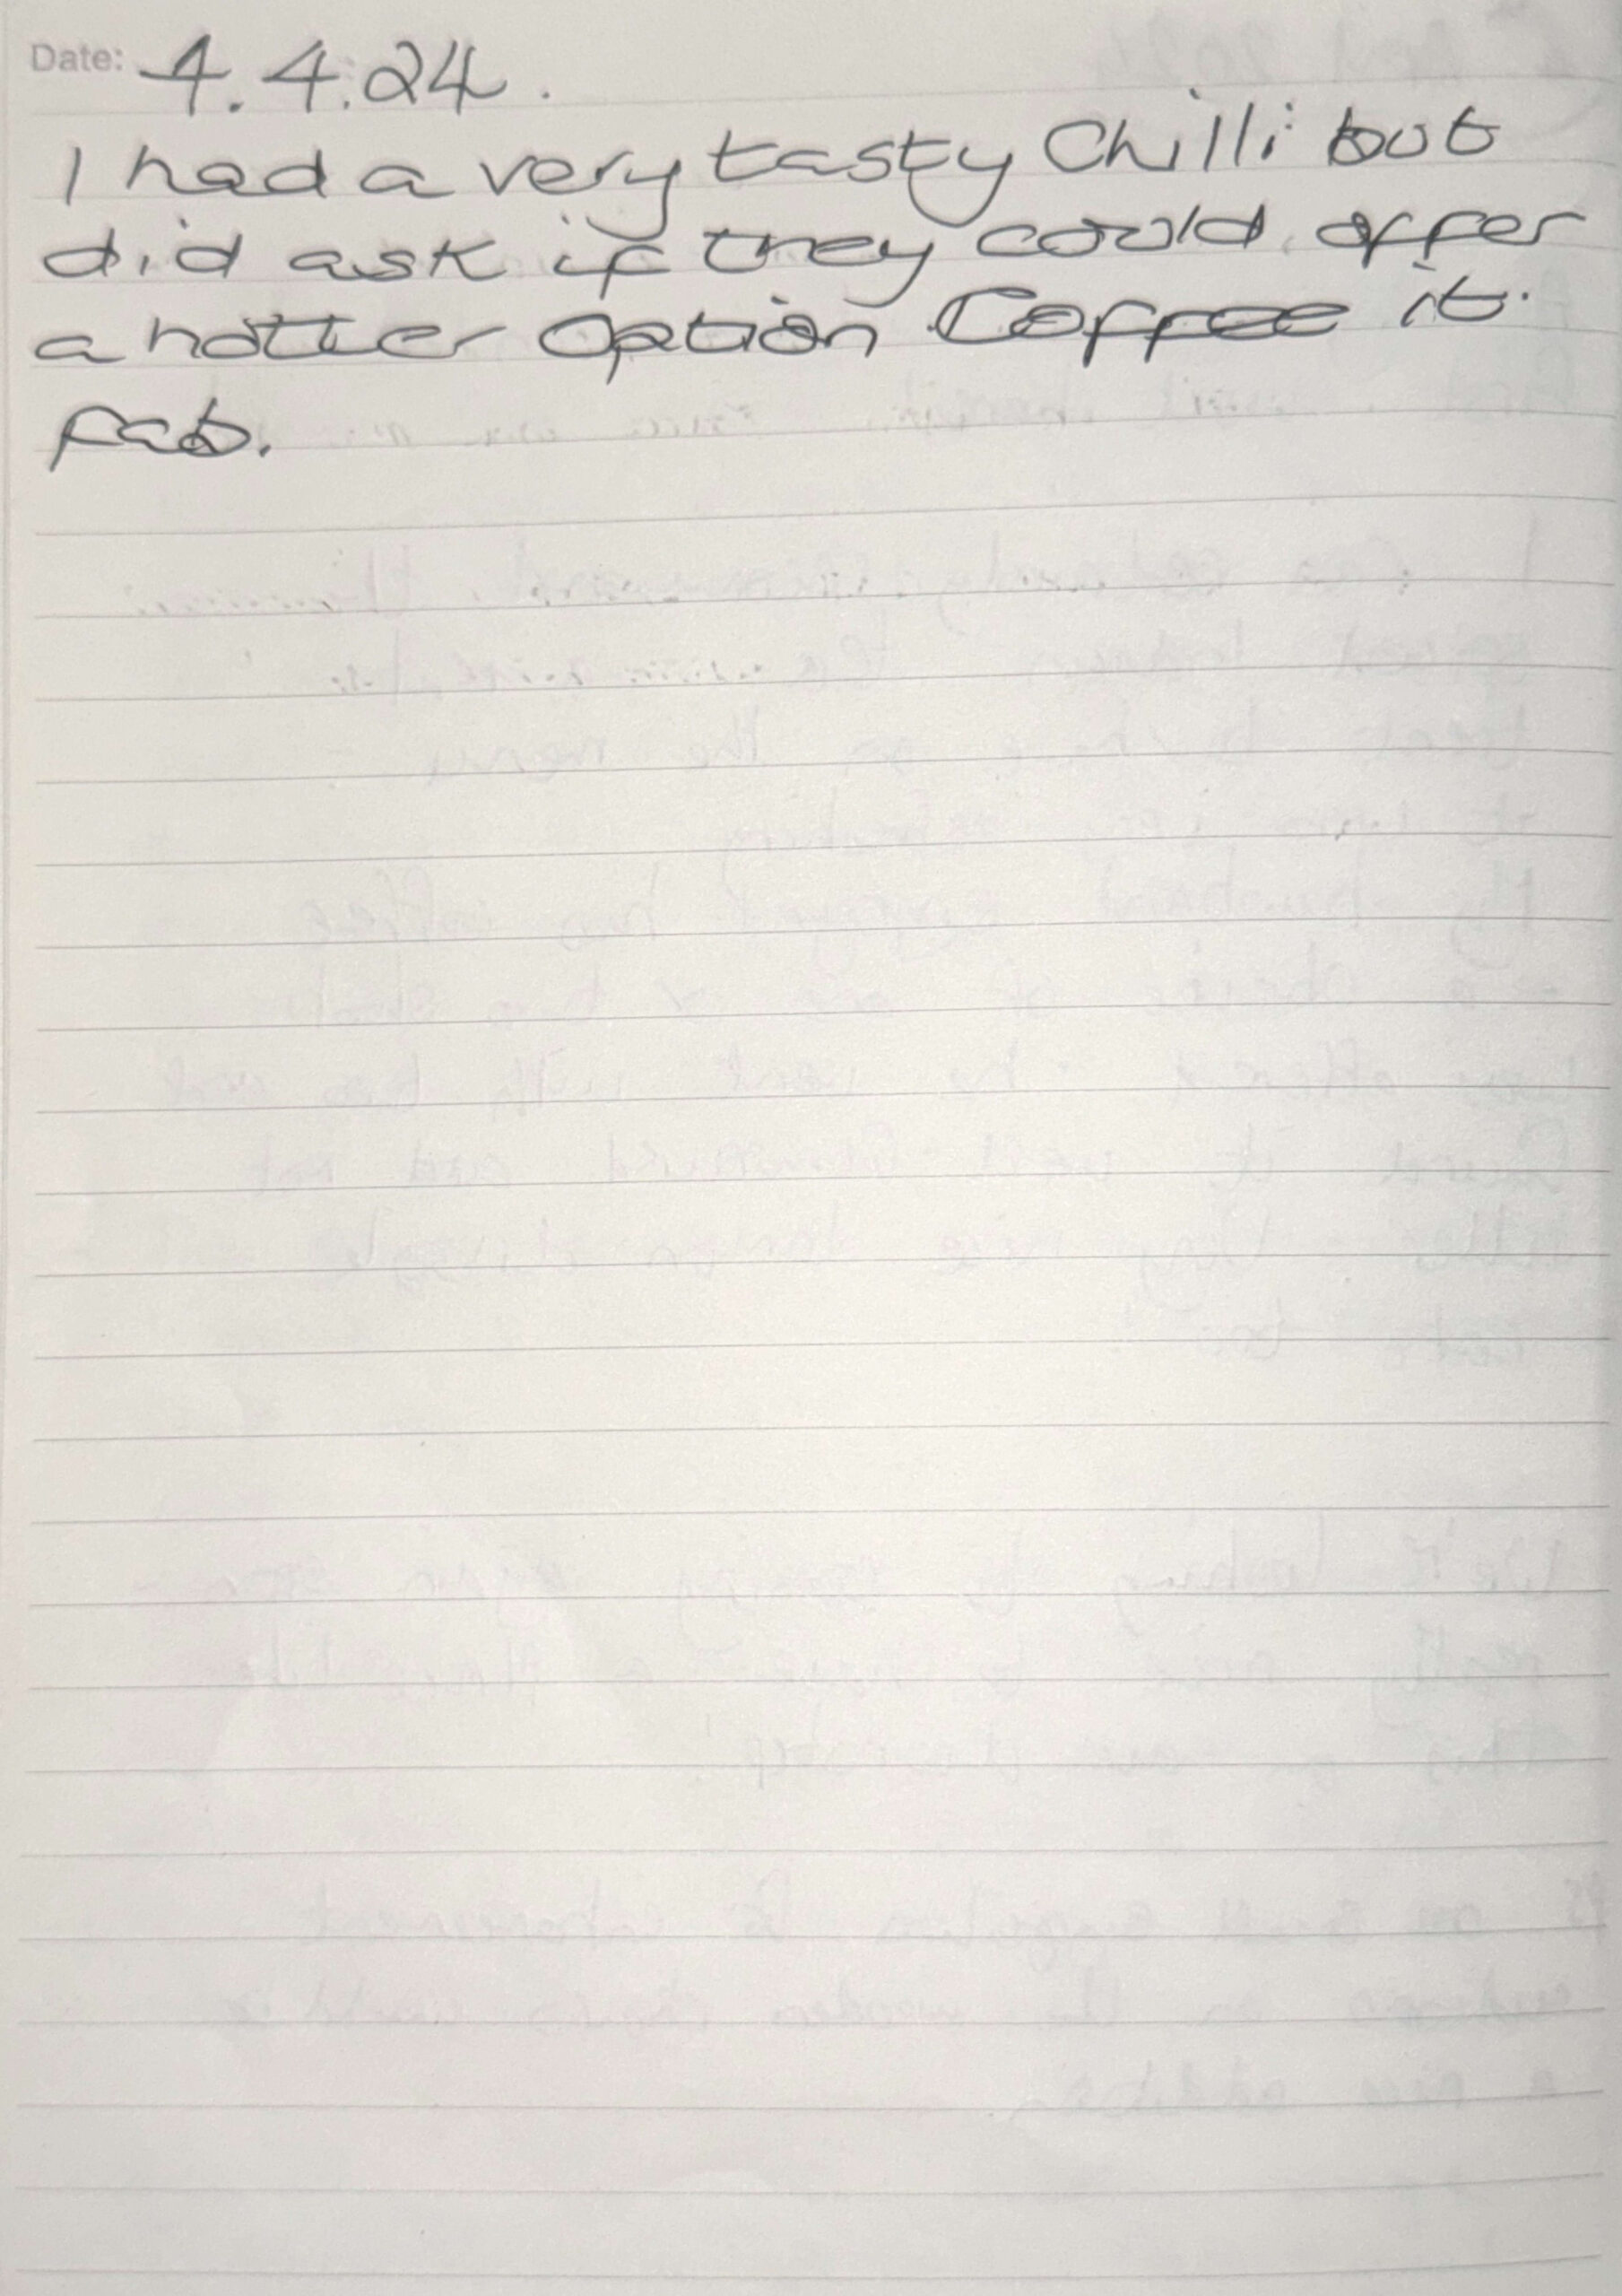 Date: 4.4.24.
I had a very tasty Chilli but
did ask if they could offer
a hotter option Coffee it.
fab.